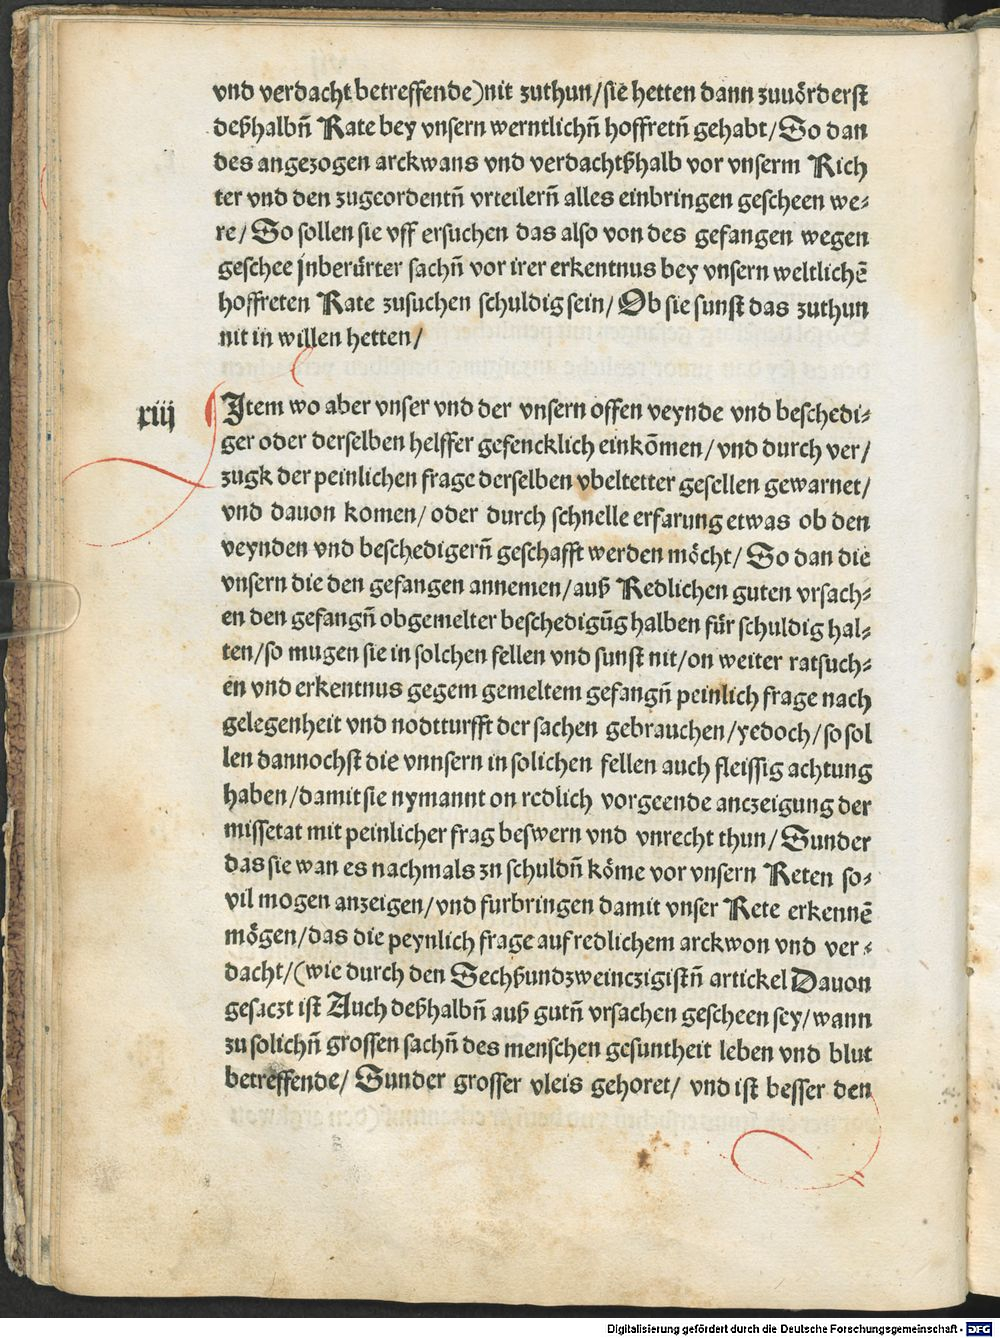 vnd verdacht betreffende)nit zuthun/sie hetten dann zuuörderst
deßhalbn̄ Rate bey vnsern werntlichn̄ hoffretn̄ gehabt/So dan
des angezogen arckwans vnd verdachtßhalb vor vnserm Rich
ter vnd den zugeordentn̄ vrteilern̄ alles einbringen gescheen we⸗
re/So sollen sie vff ersuchen das also von des gefangen wegen
geschee jnberürter sachn̄ vor irer erkentnus bey vnsern weltlichē
hoffreten Rate zusuchen schuldig sein/Ob sie sunst das zuthun
nit in willen hetten/
xiij Item wo aber vnser vnd der vnsern offen veynde vnd beschedi⸗
ger oder derselben helffer gefencklich einkōmen/vnd durch ver/
zugk der peinlichen frage derselben vbeltetter gesellen gewarnet/
vnd dauon komen/oder durch schnelle erfarung etwas ob den
veynden vnd beschedigern̄ geschafft werden möcht/So dan die
vnsern die den gefangen annemen/auß Redlichen guten vrsach⸗
en den gefangn̄ obgemelter beschedigūg halben für schuldig hal⸗
ten/so mugen sie in solchen fellen vnd sunst nit/on weiter ratsuch⸗
en vnd erkentnus gegem gemeltem gefangn̄ peinlich frage nach
gelegenheit vnd nodtturfft der sachen gebrauchen/yedoch/so sol
len dannochst die vnnsern in solichen fellen auch fleissig achtung
haben/damit sie nymannt on redlich vorgeende anczeigung der
missetat mit peinlicher frag beswern vnd vnrecht thun/Sunder
das sie wan es nachmals zn schuldn̄ köme vor vnsern Reten so⸗
vil mogen anzeigen/vnd furbringen damit vnser Rete erkennē
mögen/das die peynlich frage auf redlichem arckwon vnd ver⸗
dacht/(wie durch den Sechßundzweinczigistn̄ artickel Dauon
gesaczt ist Auch deßhalbn̄ auß gutn̄ vrsachen gescheen sey/wann
zu solichn̄ grossen sachn̄ des menschen gesuntheit leben vnd blut
betreffende/Sunder grosser vleis gehoret/vnd ist besser den
Digitalisierung gefördert durch die Deutsche Forschungsgemeinschaft - DFG